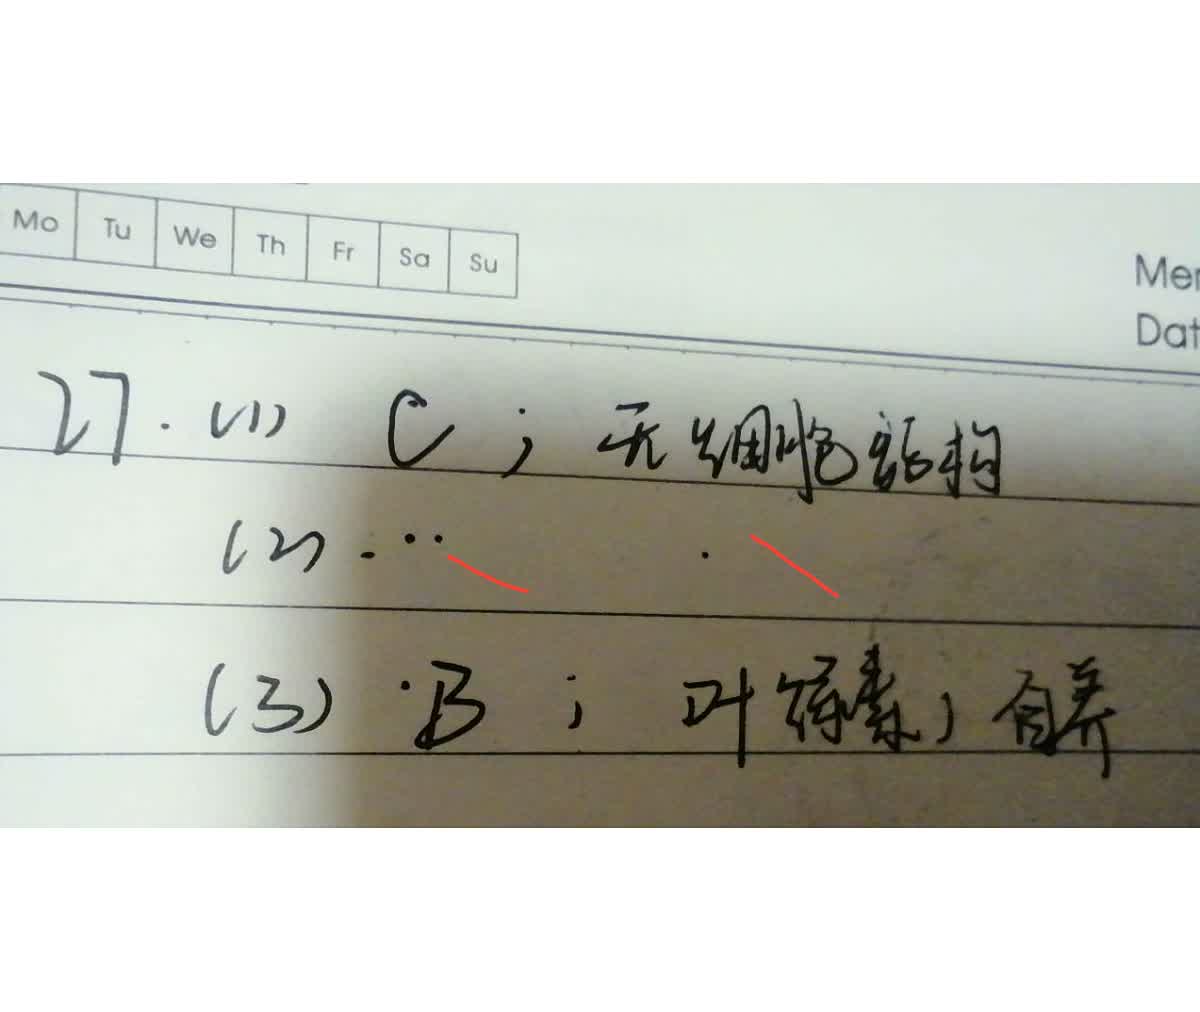 Mo Tu We Th Fr Sa Su
Mer
Dat
27. (1) C ; 无细胞结构
(2) . ..
(3) ·B ; 叶绿素, 自养